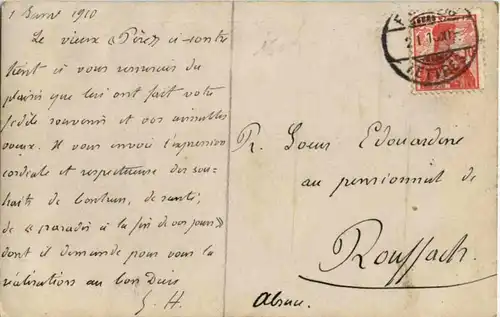 1 Janv 1910
Le vieux "Père" ci-contre
tient à vous remercier du
plaisir que lui ont fait votre
fidèle souvenir et vos aimables
vœux. Il vous envoie l'expression
cordiale et respectueuse des sou-
haits de bonheur, de santé,
de "paradis à la fin de vos jours"
dont il demande pour vous la
réalisation au bon Dieu
S. H.
R. Soeur Edouardine
au pensionnat de
Rouffach.
Alsace.